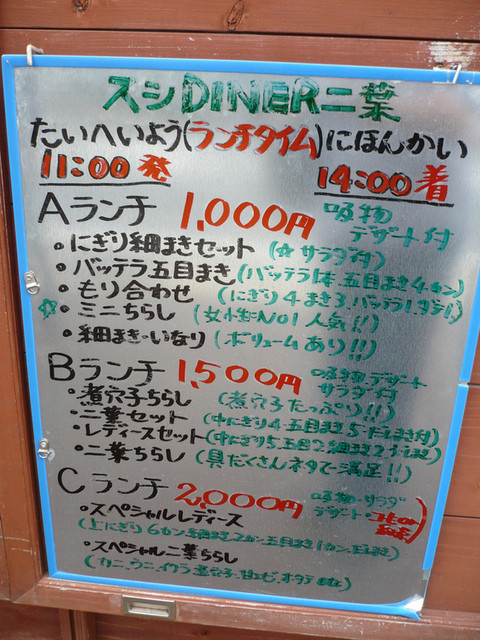 スシDINER二葉
たいへいよう(ランチタイム)にほんかい
11:00発 14:00着
Aランチ 1,000円 吸物 デザート付
・にぎり細まきセット (☆サラダ付)
・バッテラ五目まき (バッテラ1本、五目まき4カン)
・もり合わせ (にぎり4まき3バッテラ1、サラダ)
☆・ミニちらし (女性NO1人気!!)
・細まき・いなり (ボリュームあり!!)
Bランチ 1,500円 吸物、デザート サラダ付
・煮穴子ちらし (煮穴子たっぷり!!)
・二葉セット (中にぎり4、五目まき5、だしまき付)
・レディースセット (中にぎり5、五目2、細まき2、だしまき)
・二葉ちらし (具だくさんネタで満足!!)
Cランチ 2,000円 吸物・サラダ デザート・コーヒー
・スペシャルレディース
(上にぎり6カン、細まき2カン、五目まき1カン、だしまき)
・スペシャル二葉ちらし
(カニ、ウニ、イクラ、煮穴子、甘エビ、ホタテ etc)